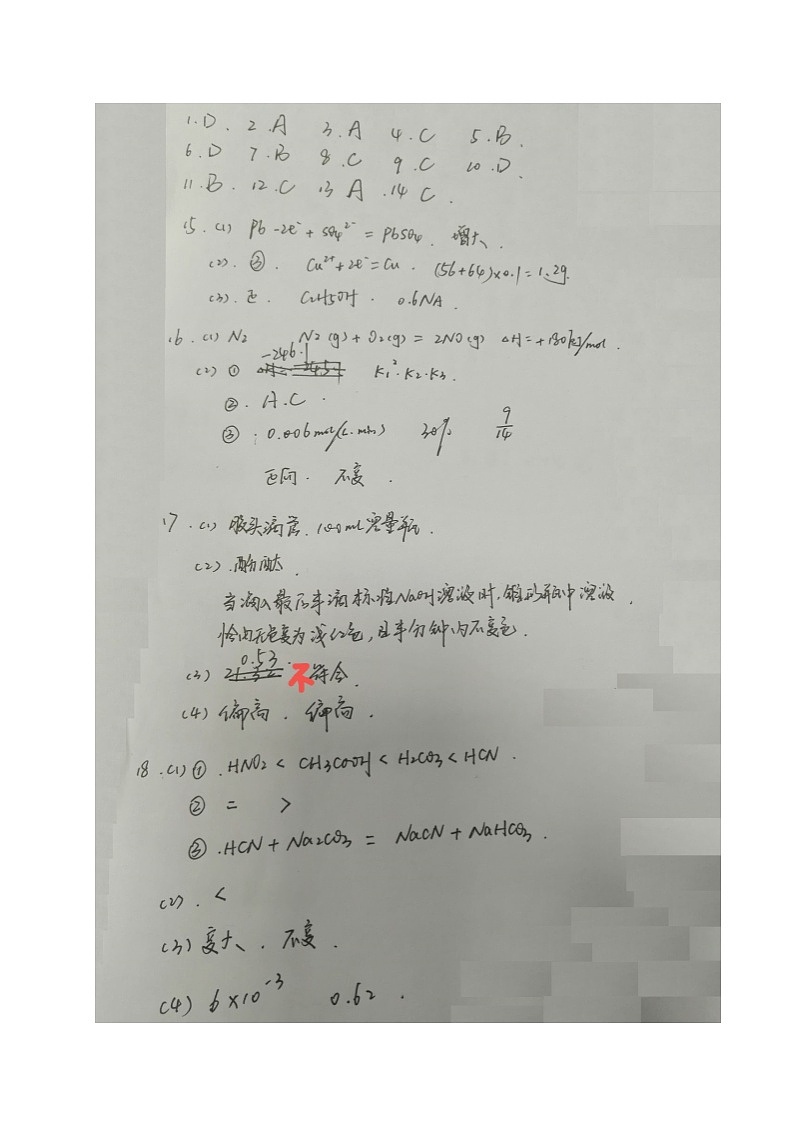 1.D. 2.A 3.A 4.C 5.B.
6.D 7.B 8.C 9.C 10.D.
11.B. 12.C 13 A .14 C.
15.(1) Pb-2e⁻+SO₄²⁻=PbSO₄. 增大.
(2).②. Cu²⁺+2e⁻=Cu. (56+64)×0.1=12g.
(3).正. C₂H5OH. 0.6NA.
16.(1) N₂ N₂(g)+O₂(g)=2NO(g) ΔH=+180kJ/mol.
(2) ① -246.1 K₁²·K₂·K₃.
②.A.C.
③.0.006mol/(L.min) 30% 9/14
正向. 不变.
17.(1) 胶头滴管.100ml容量瓶.
(2).酚酞.
当滴入最后半滴标准NaOH溶液时,锥形瓶中溶液.
恰由无色变为浅红色,且半分钟内不变色.
(3) 0.53. 不符合.
(4) 偏高. 偏高.
18.(1)①.HNO₂<CH₃COOH<H₂CO₃<HCN.
② = >
③.HCN+Na₂CO₃=NaCN+NaHCO₃.
(2).<
(3)变大. 不变.
(4) 6×10⁻³ 0.62.